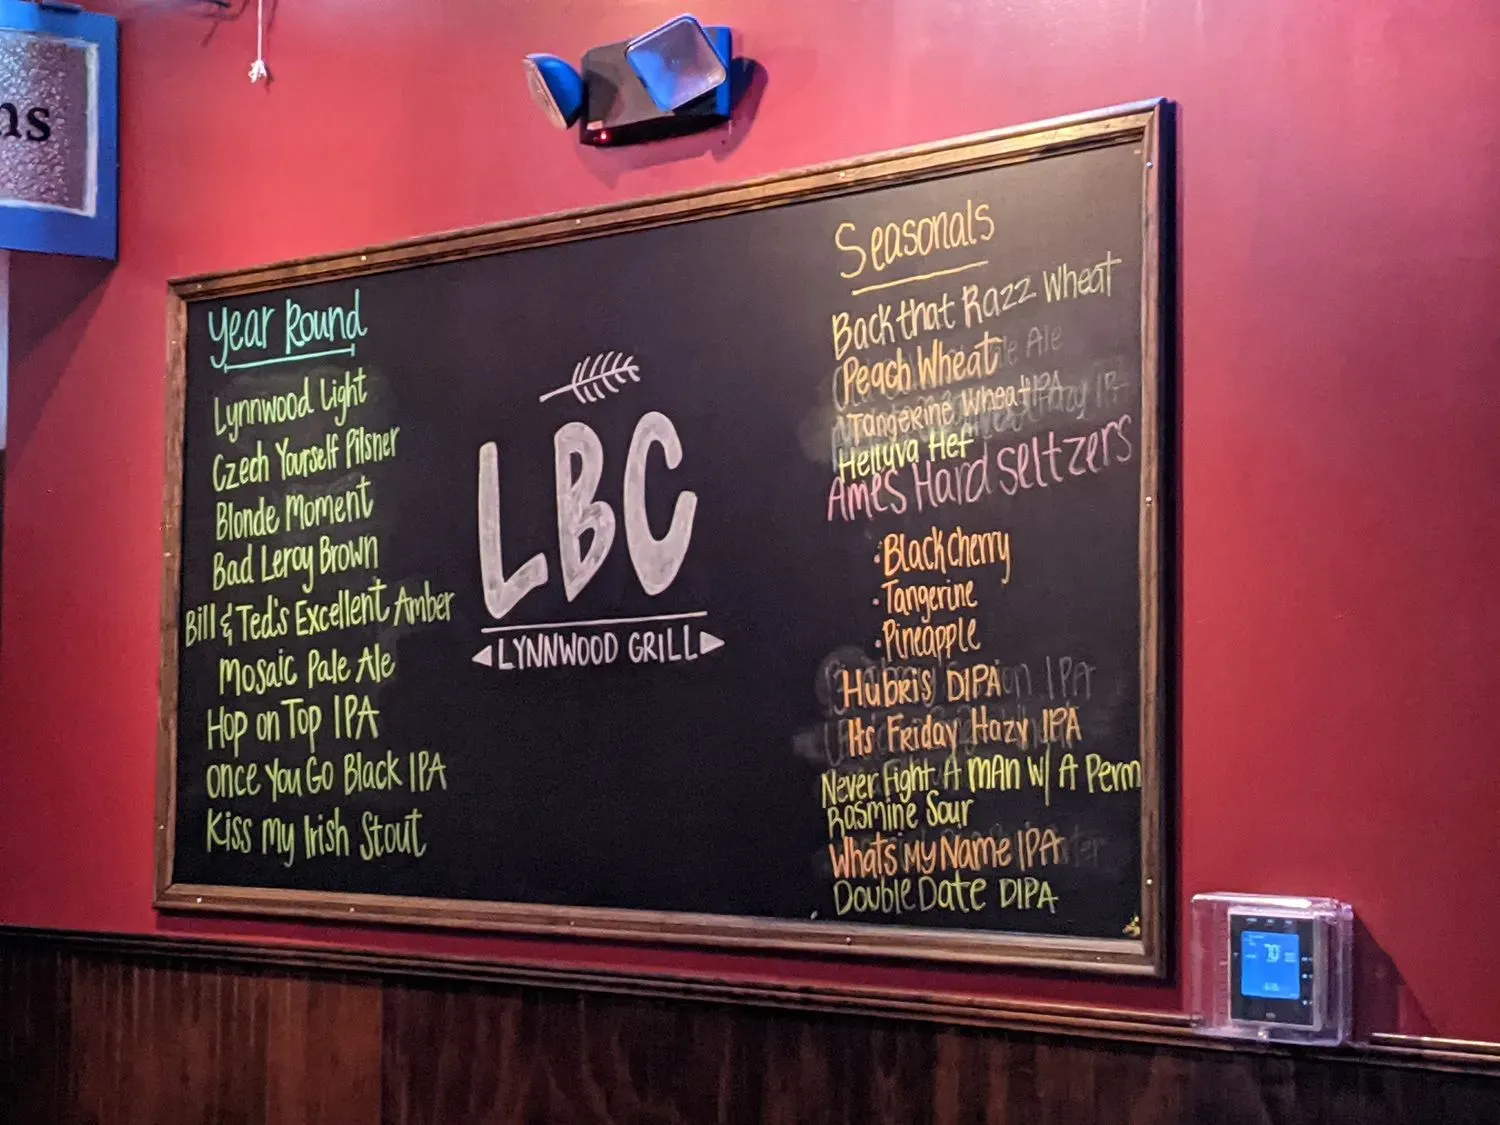 ns
Year Round
Lynnwood Light
Czech Yourself Pilsner
Blonde Moment
Bad Leroy Brown
Bill & Ted's Excellent Amber
Mosaic Pale Ale
Hop on Top IPA
Once You Go Black IPA
Kiss My Irish Stout
LBC
LYNNWOOD GRILL
Seasonals
Back that Razz Wheat
Peach Wheat
Tangerine Wheat
Helluva Hef
Ames Hard Seltzers
· Black cherry
· Tangerine
· Pineapple
Hubris DIPA
Its Friday Hazy IPA
Never Fight A MAN W/ A Perm
Rasmine Sour
Whats My Name IPA
Double Date DIPA
70°